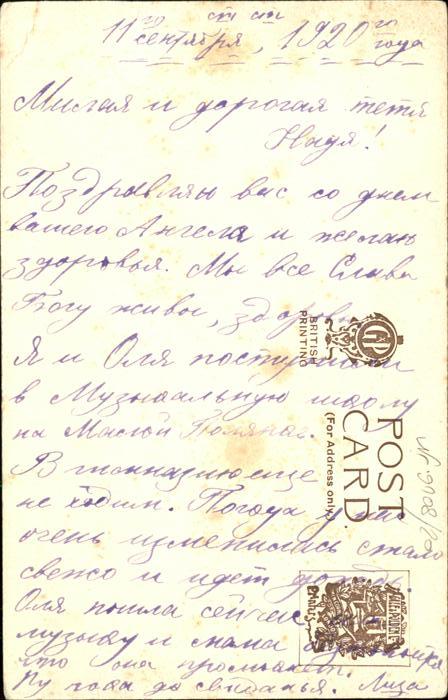 11го сентября ст ст, 1920го года
Милая и дорогая тетя
Надя!
Поздравляю вас со днем
вашего Ангела и желаю
здоровья. Мы все Слава
Богу живы, здоровы
Я и Оля поступили
в Музыкальную школу
на Малой
В гимназию еще
не ходим. Погода у нас
очень изменилась стало
свежо и идет дождь.
Оля пошла сейчас на
музыку и мама
что она промокнет.
Ну пока до свиданья. Лиза
BRITISH
PRINTING
POST
CARD.
(For Address only)